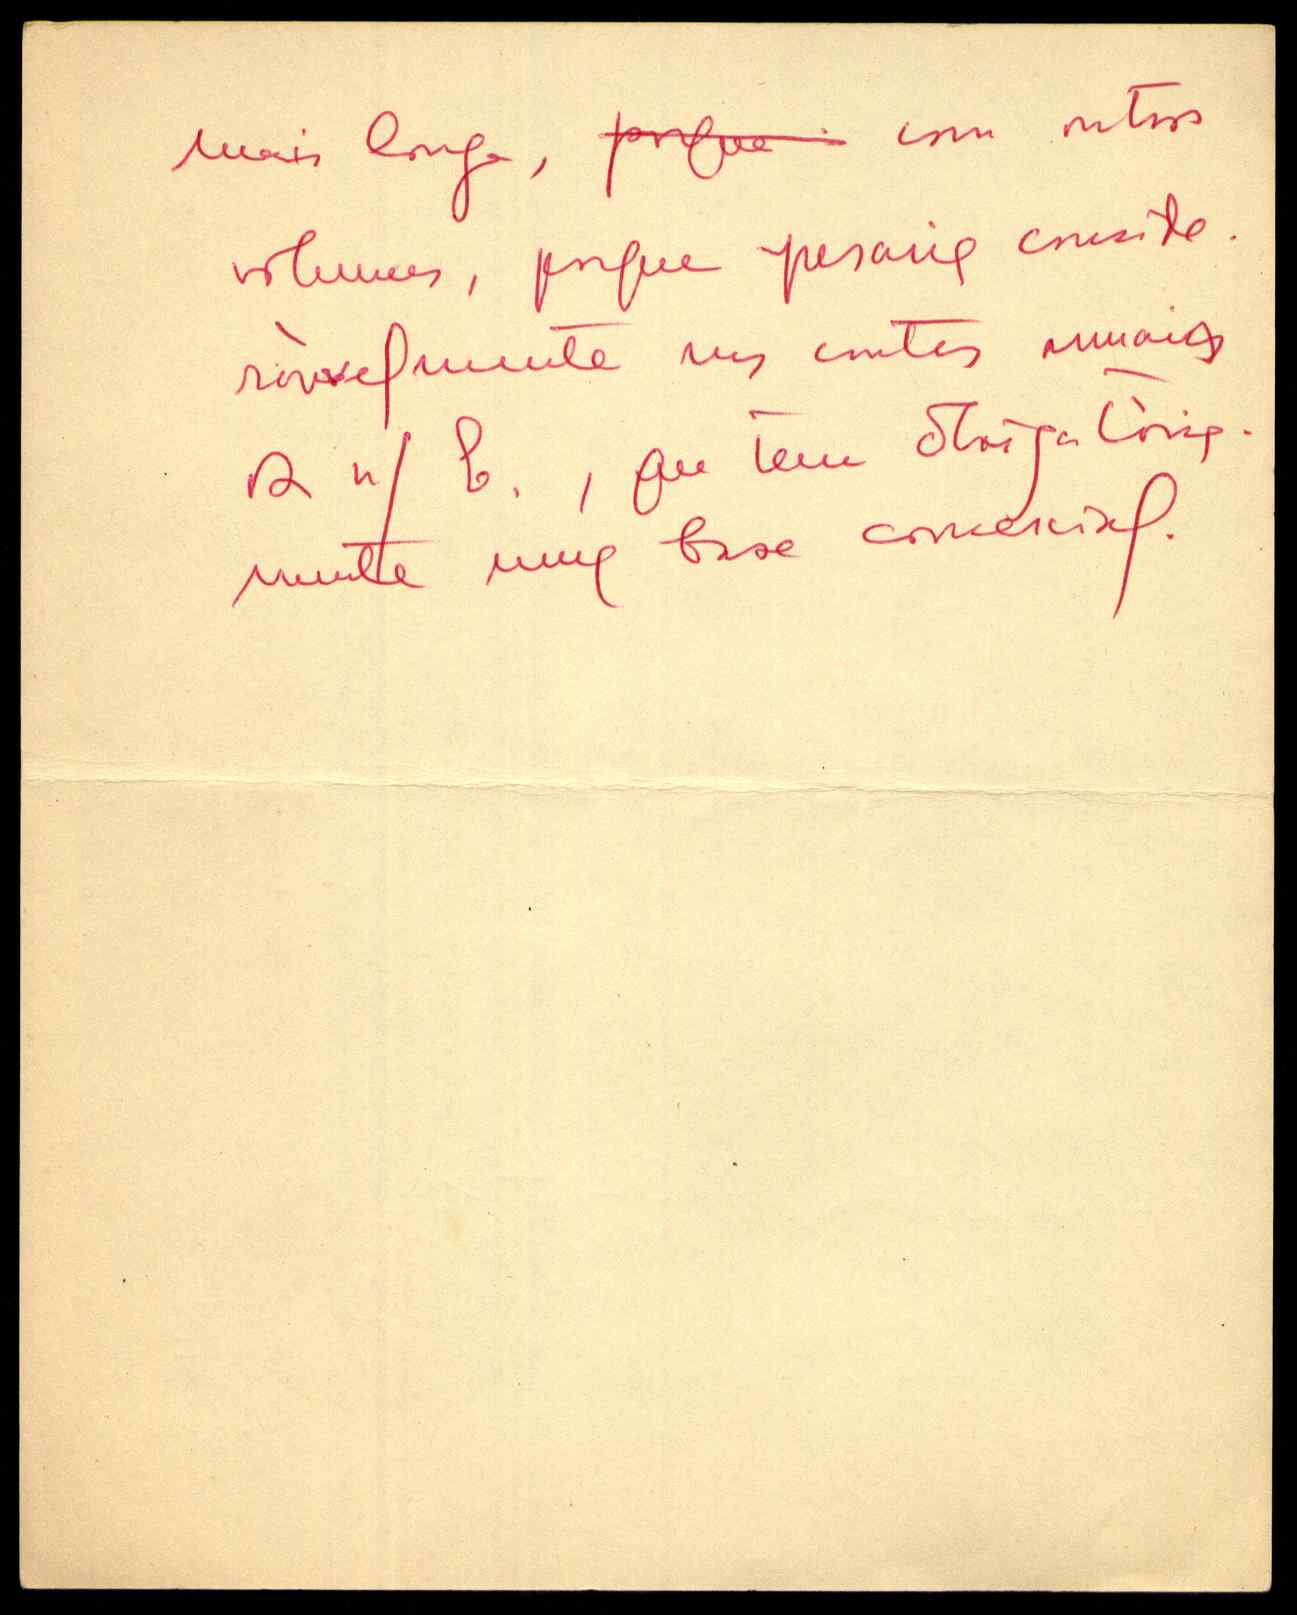 mais longa, porque com outros
volumes, porque pesaria conside-
ràvelmente nas contas anuais
da n/ E., que tem obrigatòria-
mente uma base comercial.